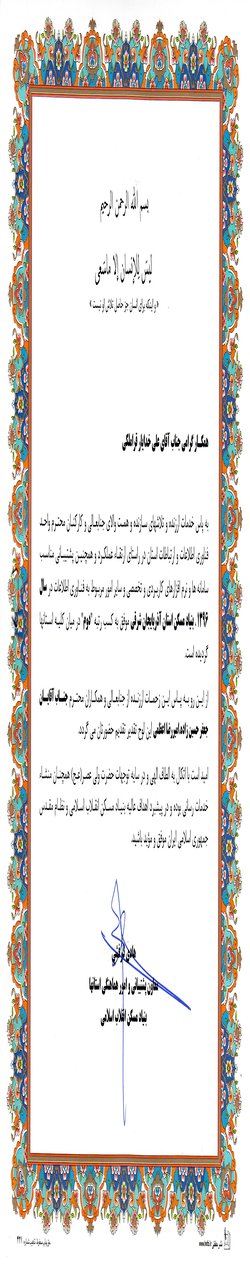 بسم الله الرحمن الرحیم
لیس للإنسان إلا ما سعی
« و اینکه برای انسان جز حاصل تلاش او نیست »
همکار گرامی جناب آقای علی خدایار قراملکی
به پاس خدمات ارزنده و تلاشهای سازنده و همت والای جنابعالی و کارکنان محترم واحد
فناوری اطلاعات و ارتباطات استان در راستای ارتقاء عملکرد و همچنین پشتیبانی مناسب
سامانه ها و نرم افزارهای کاربردی و تخصصی و سایر امور مربوط به فناوری اطلاعات در سال
۱۳۹۶، بنیاد مسکن استان آذربایجان شرقی موفق به کسب رتبه "دوم" در میان کلیه استانها
گردیده است.
از این رو به پاس این زحمات ارزنده از جنابعالی و همکاران محترم جناب آقایان
جعفر حسین زاده امیررضا اعظمی این لوح تقدیر تقدیم حضورتان می گردد.
امید است با اتکال به الطاف الهی و در سایه توجهات حضرت ولی عصر(عج) همچنان منشاء
خدمات رسانی بوده و در پیشبرد اهداف عالیه بنیاد مسکن انقلاب اسلامی و نظام مقدس
جمهوری اسلامی ایران موفق و موید باشید.
معاون پشتیبانی و امور هماهنگی استانها
بنیاد مسکن انقلاب اسلامی